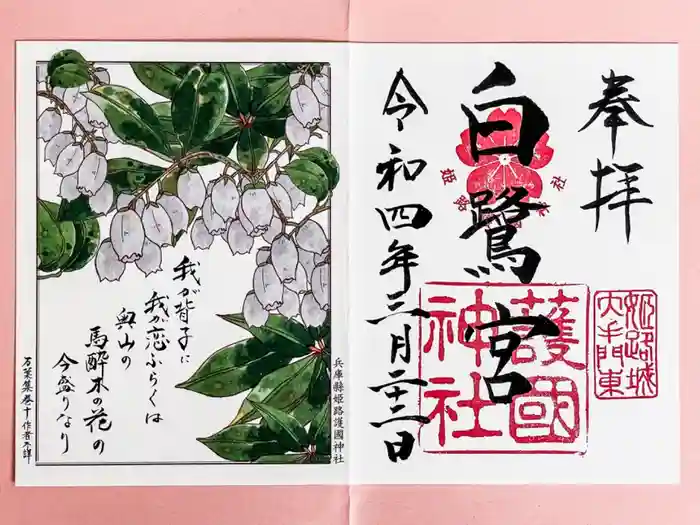 奉拝
白鷺宮
令和四年三月二十三日
護國
神社
姫路城
大手門東
兵庫縣姫路護國神社
我が背子に
我が恋ふらくは
奥山の
馬酔木の花の
今盛りなり
万葉集巻十作者不詳